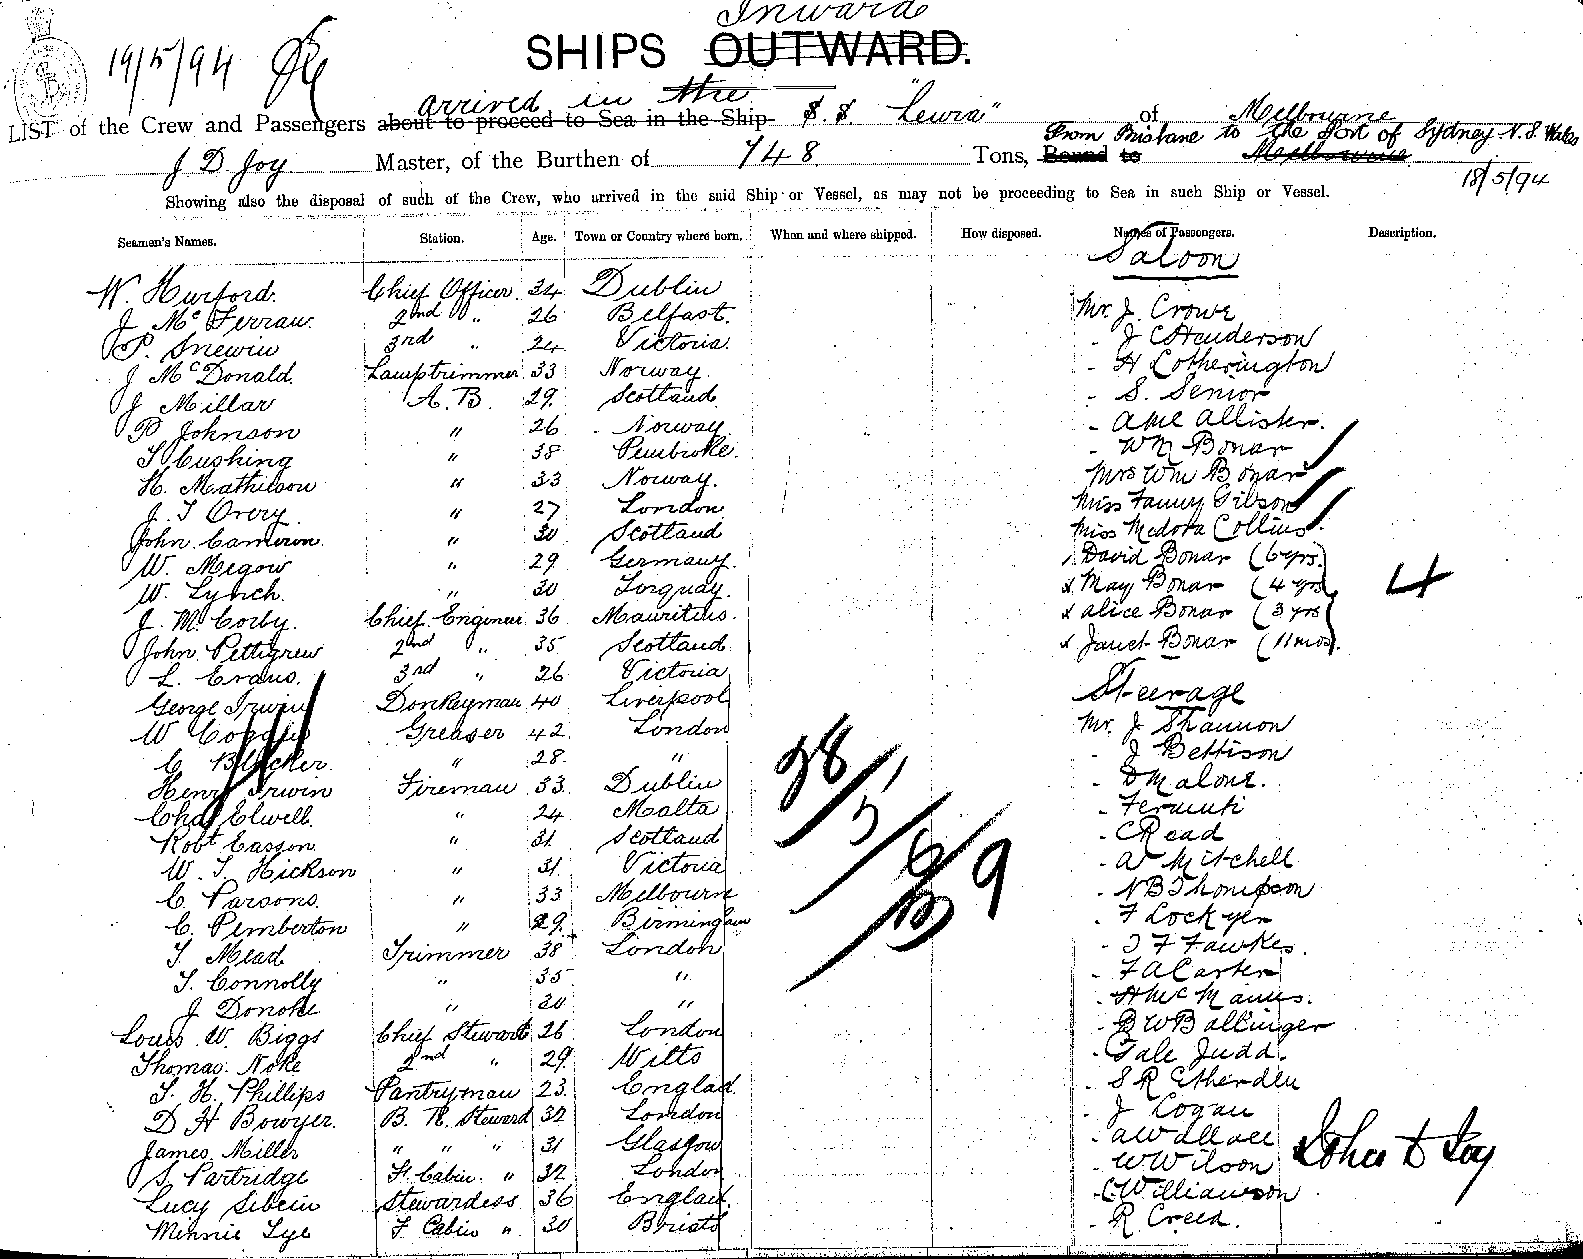 Inward
19/5/94
SHIPS OUTWARD.
arrived in the
LIST of the Crew and Passengers about to proceed to Sea in the Ship S.S. "Leura" of Melbourne
From Brisbane to the Port of Sydney N.S. Wales
J D Joy Master, of the Burthen of 748 Tons, Bound to Melbourne
18/5/94
Showing also the disposal of such of the Crew, who arrived in the said Ship or Vessel, as may not be proceeding to Sea in such Ship or Vessel.
Seamen's Names. Station. Age. Town or Country where born. When and where shipped. How disposed. Names of Passengers. Description.
Saloon
W. Hurford. Chief Officer 34 Dublin
J McFerran. 2nd " 26 Belfast.
P. Snewin 3rd " 24 Victoria.
J McDonald. Lamptrimmer 33 Norway.
J Millar A.B. 29. Scotland
P Johnson " 26 Norway
T Cushing " 38 Pembroke.
H. Mathieson " 33 Norway.
J. T Overy " 27 London
John Cameron. " 30 Scotland
W. Megow " 29 Germany.
W. Lynch. " 30 Torquay.
J. M Corby. Chief Engineer 36 Mauritius.
John Pettigrew 2nd " 35 Scotland
L. Evans. 3rd " 26 Victoria
George Irwin Donkeyman 40 Liverpool
W Greaser 42 London
C " 28. "
Henry Irwin Fireman 33 Dublin
Chas Elwell. " 24 Malta
Robt Easson " 31 Scotland
W. T. Hickson " 31 Victoria
C. Parsons. " 33 Melbourne
C. Pemberton " 29. Birmingham
T. Mead Trimmer 38 London
T. Connolly " 35 "
J Donohe " 30 "
Louis W. Biggs Chief Steward 26 London
Thomas Noke 2nd " 29. Wilts
T. H. Phillips Pantryman 23. Englad
D H Bowyer. B. R. Steward 32 London
James Miller " " " 31 Glasgow
S. Partridge F. Cabin " 32 London
Lucy Sibein Stewardess 36 Englad
Minnie Lye F Cabin " 30 Bristol
Mr. J. Crowe
- J C Henderson
- H Cotherington
- S. Senior
- A McAllister.
- Wm Bonar
Mrs Wm Bonar
Miss Fanny Gibson
Miss Medora Collins.
David Bonar (6 yrs)
x May Bonar (4 yrs)
x Alice Bonar (3 yrs)
x Janet Bonar (11 mos).
4
Steerage
Mr. J Shannon
- J Bettison
- D Malone.
- C Read
- A Mitchell
- N B Thompson
- F Lockyer
- T F Fawkes.
- F A Carter
- H McManus.
- R W Ballinger
- Tale Judd.
- S R Etherden
- J Cogan
- A Wallace
- W Wilson
- C Williamson
- R Creed.
28/5/6/9
John D Joy